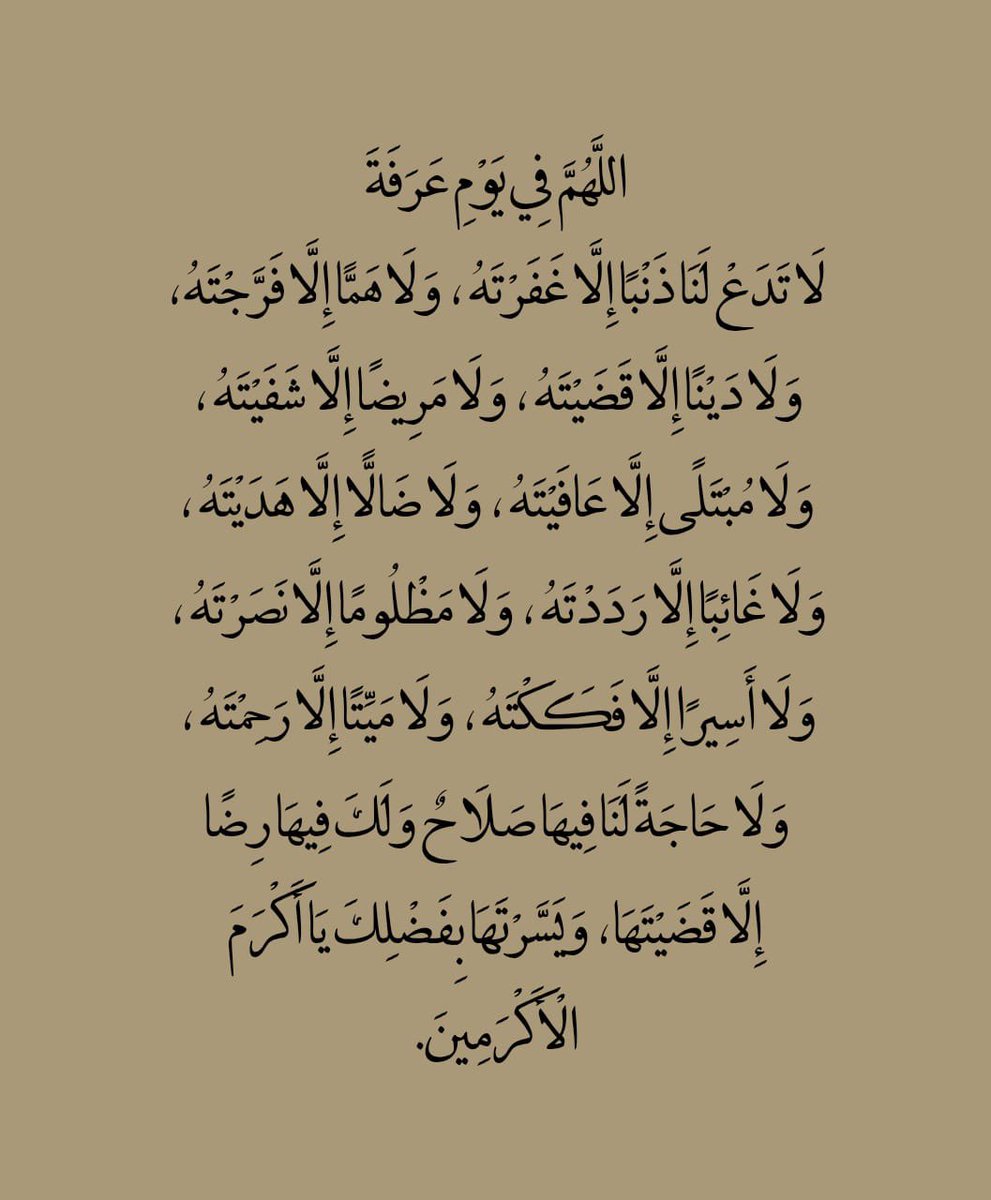 اللَّهُمَّ فِي يَوْمِ عَرَفَةَ
لَا تَدَعْ لَنَا ذَنْبًا إِلَّا غَفَرْتَهُ، وَلَا هَمًّا إِلَّا فَرَّجْتَهُ،
وَلَا دَيْنًا إِلَّا قَضَيْتَهُ، وَلَا مَرِيضًا إِلَّا شَفَيْتَهُ،
وَلَا مُبْتَلًى إِلَّا عَافَيْتَهُ، وَلَا ضَالًّا إِلَّا هَدَيْتَهُ،
وَلَا غَائِبًا إِلَّا رَدَدْتَهُ، وَلَا مَظْلُومًا إِلَّا نَصَرْتَهُ،
وَلَا أَسِيرًا إِلَّا فَكَكْتَهُ، وَلَا مَيِّتًا إِلَّا رَحِمْتَهُ،
وَلَا حَاجَةً لَنَا فِيهَا صَلَاحٌ وَلَكَ فِيهَا رِضًا
إِلَّا قَضَيْتَهَا، وَيَسَّرْتَهَا بِفَضْلِكَ يَا أَكْرَمَ
الْأَكْرَمِينَ.